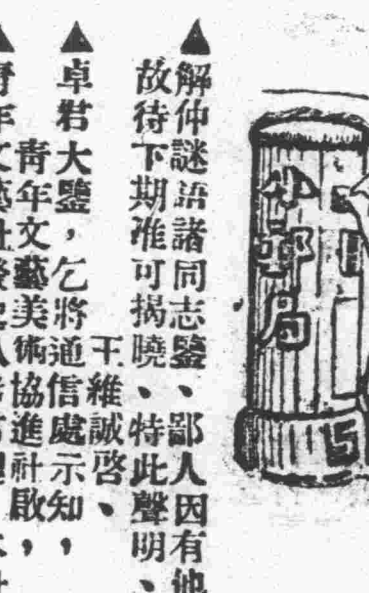 郵局
▲解仲謎語諸同志鑒、鄙人因有他
故待下期准可揭曉、特此聲明、
王維誠啓、
▲卓君大鑒，乞將通信處示知，
青年文藝美術協進社啟，
▲青年文藝社